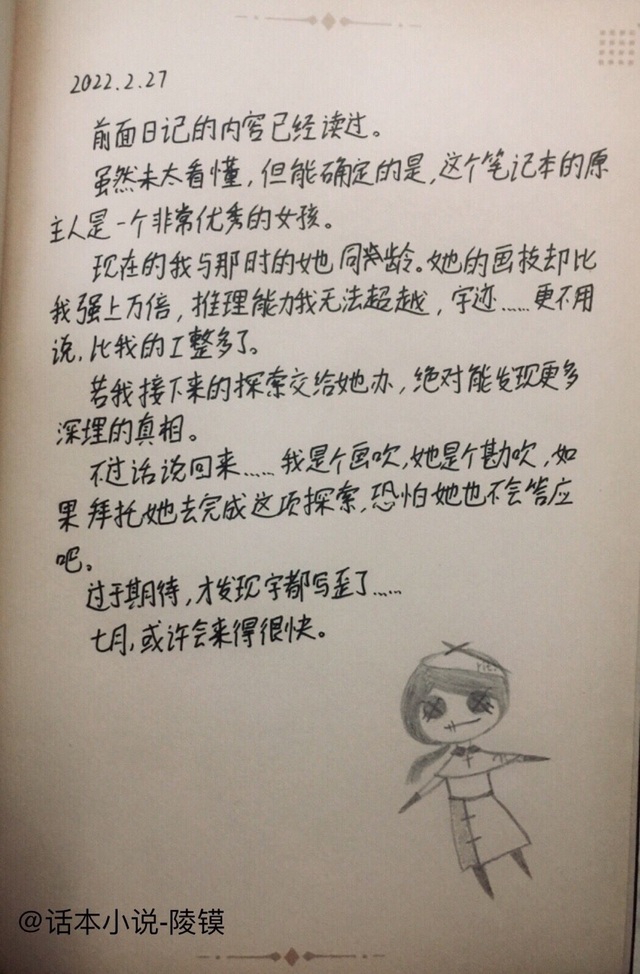 2022.2.27
前面日记的内容已经读过。
虽然未太看懂,但能确定的是,这个笔记本的原
主人是一个非常优秀的女孩。
现在的我与那时的她同龄。她的画技却比
我强上万倍,推理能力我无法超越,字迹……更不用
说,比我的工整多了。
若我接下来的探索交给她办,绝对能发现更多
深埋的真相。
不过话说回来……我是个画吹,她是个勘吹,如
果拜托她去完成这项探索,恐怕她也不会答应
吧。
过于期待,才发现字都写歪了……
七月,或许会来得很快。
@话本小说-陵镆